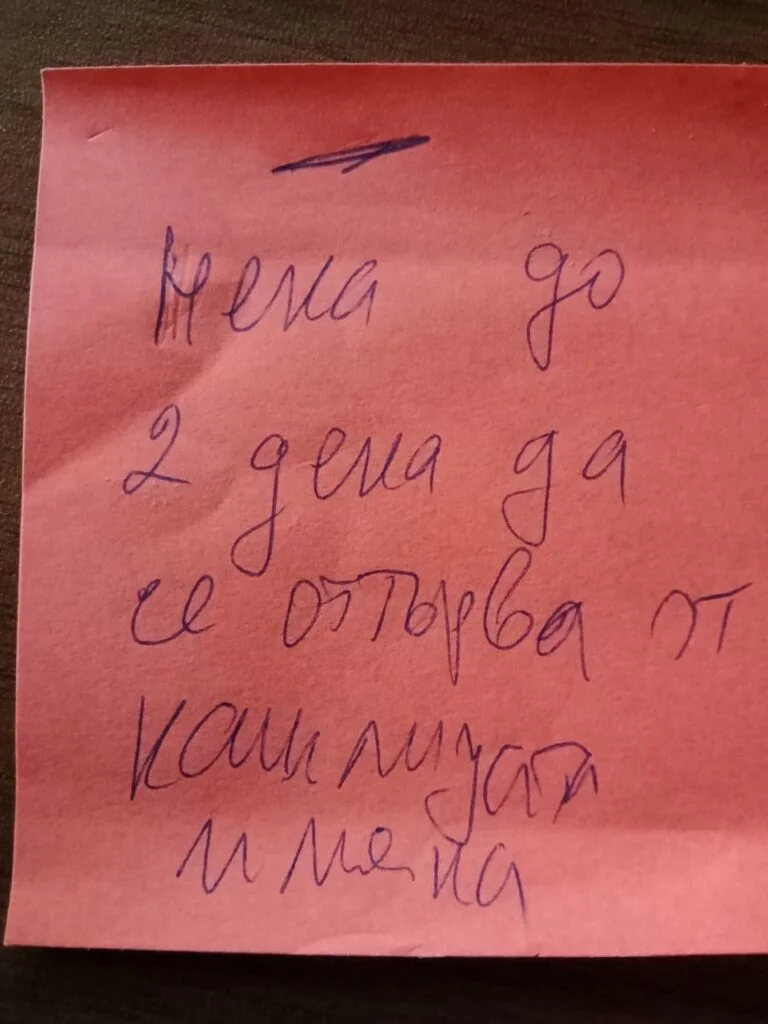 Нека до
2 дена да
се оттърва от
кашлицата
и